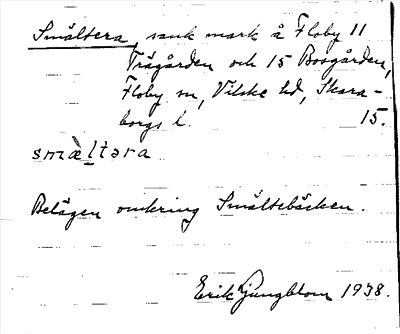 Smältera, sank mark å Floby 11
Trägården och 15 Bosgården,
Floby sn, Vilske hd, Skara-
borgs l. 15.
smàltəra
Belägen omkring Smältebäcken.
Erik Ljungblom 1938.